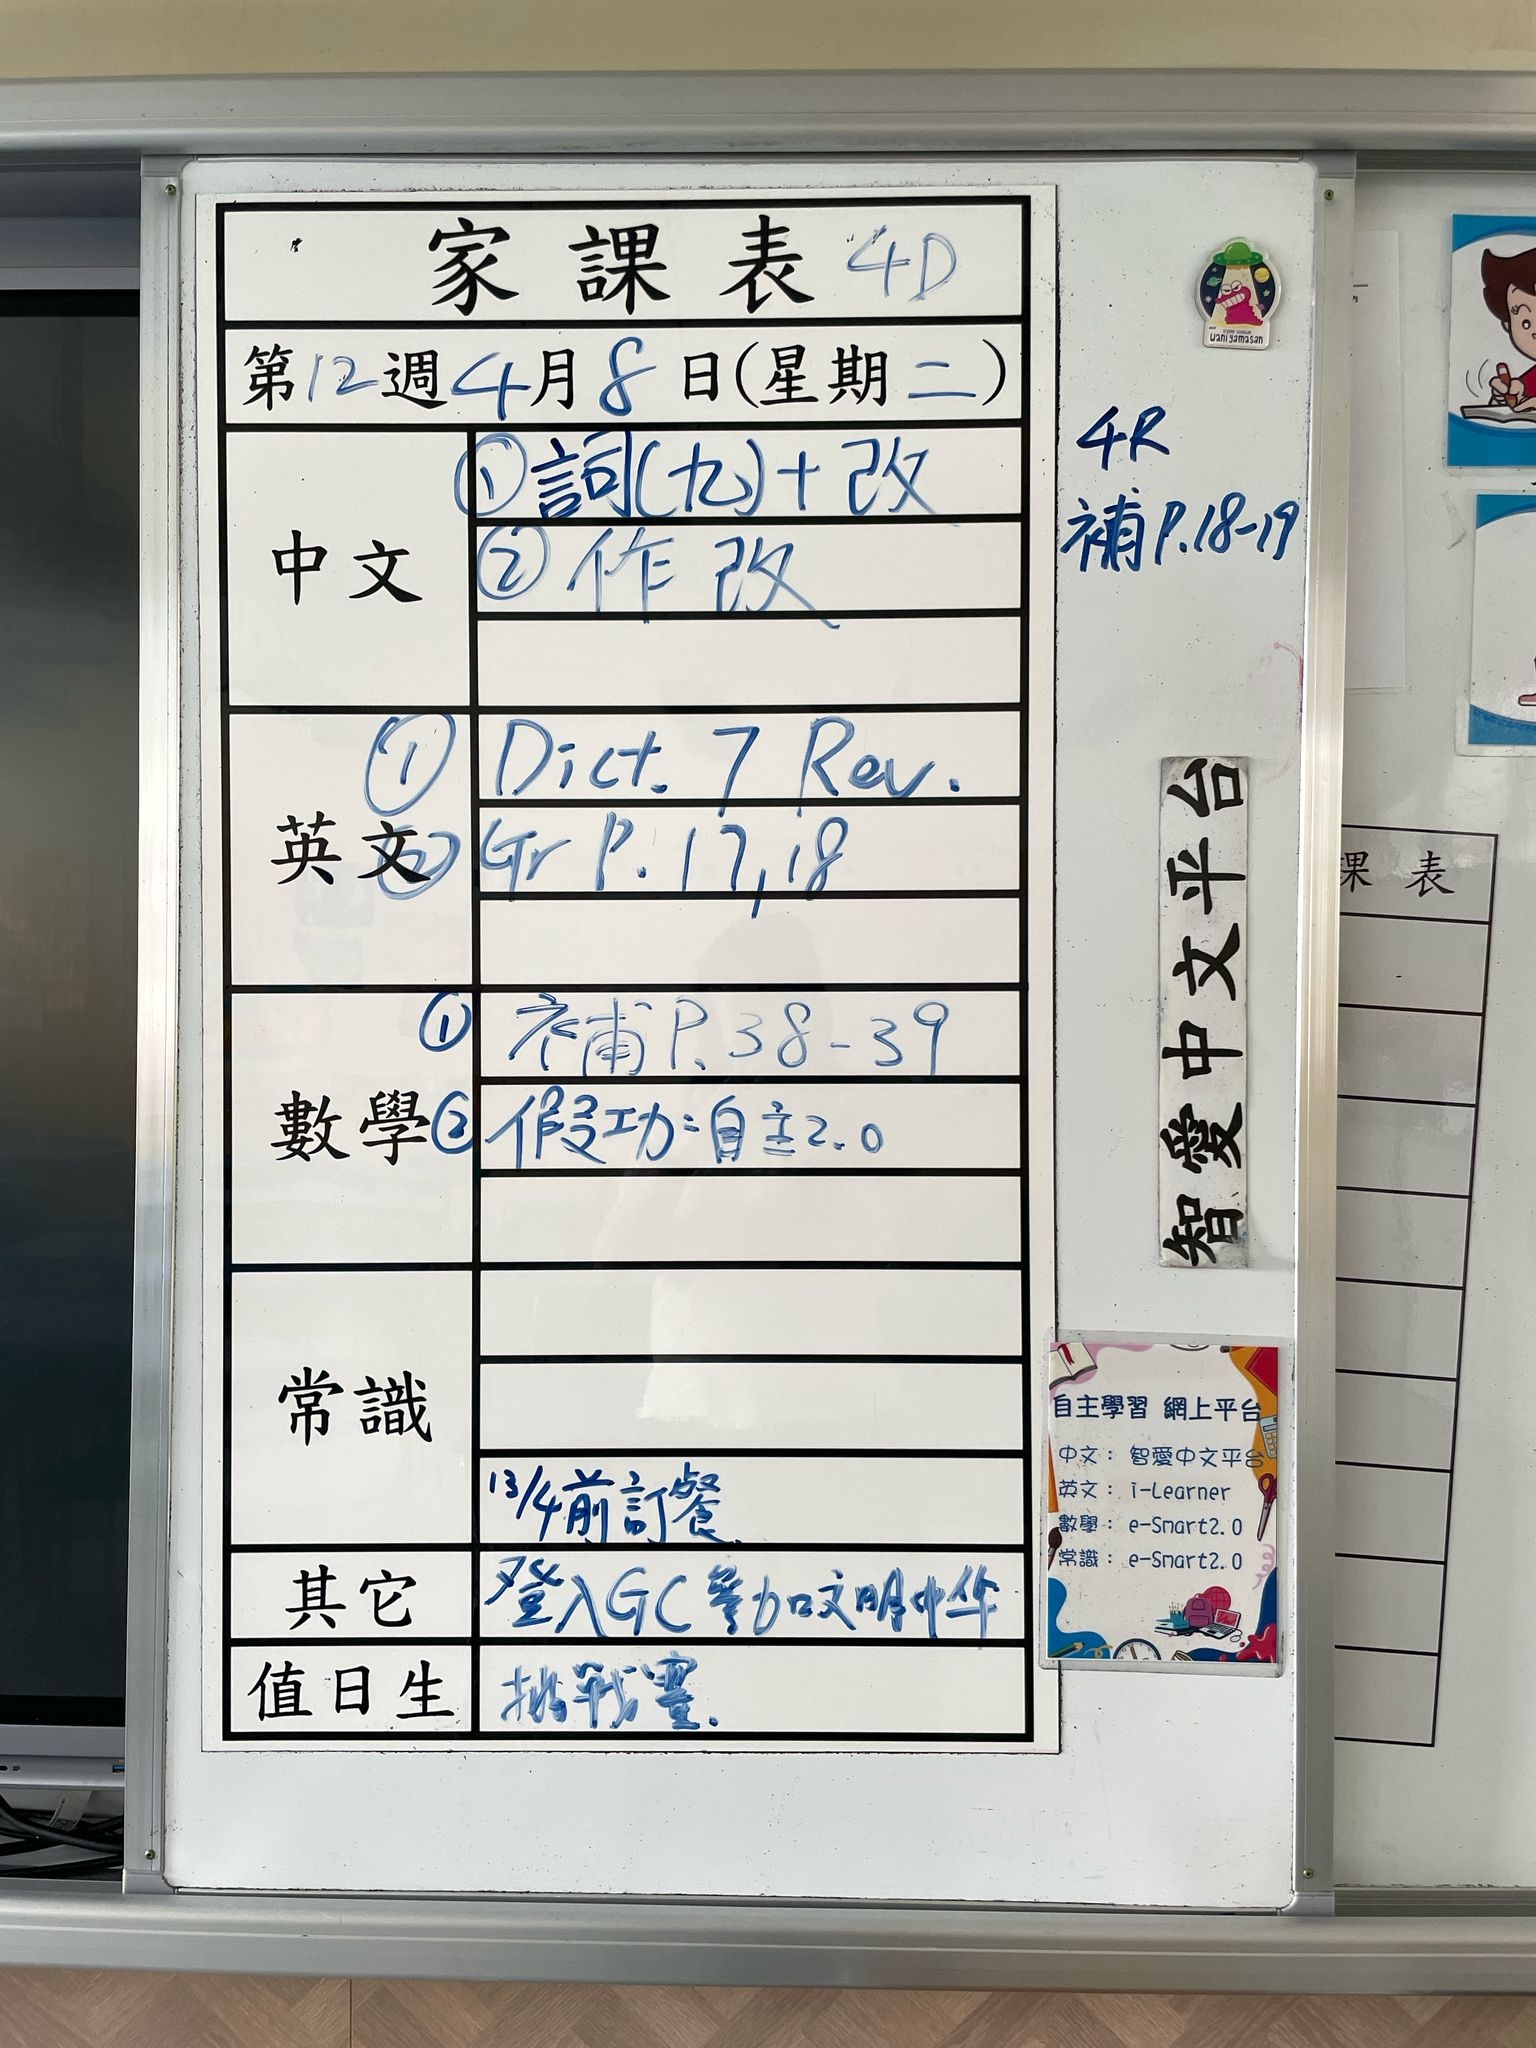 家課表 4D
第12週4月8日(星期二)
中文
①詞(九)+改
②作改
英文
① Dict. 7 Rev.
② Gr P. 17,18
數學
① 補P.38-39
② 假功:自主2.0
常識
13/4前訂餐
其它
登入GC參加文明中华
值日生
挑戰賽.
4R
補P.18-19
waniyamasan
智愛中文平台
自主學習 網上平台
中文: 智愛中文平台
英文: i-Learner
數學: e-Smart2.0
常識: e-Smart2.0
課表